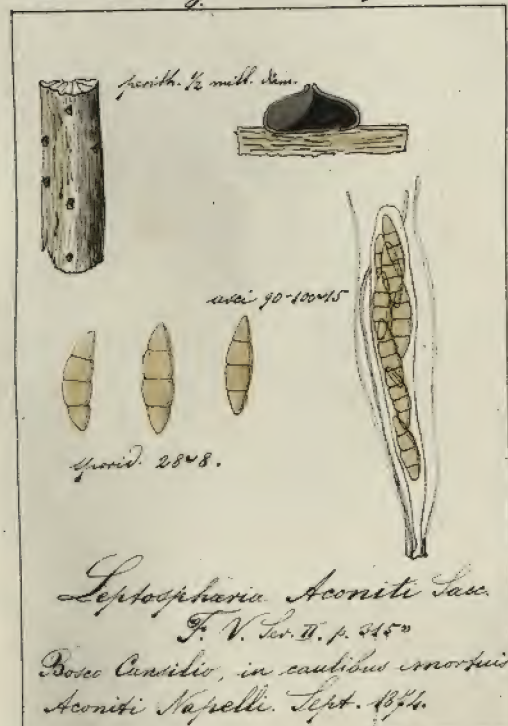 perith. ½ mill. diam.
asci 90-100~15
sporid. 28~8.
Leptosphaeria Aconiti Sacc.
F. V. Ser. II. p. 315
Bosco Cansilio, in caulibus emortuis
Aconiti Napelli. Sept. 1874.